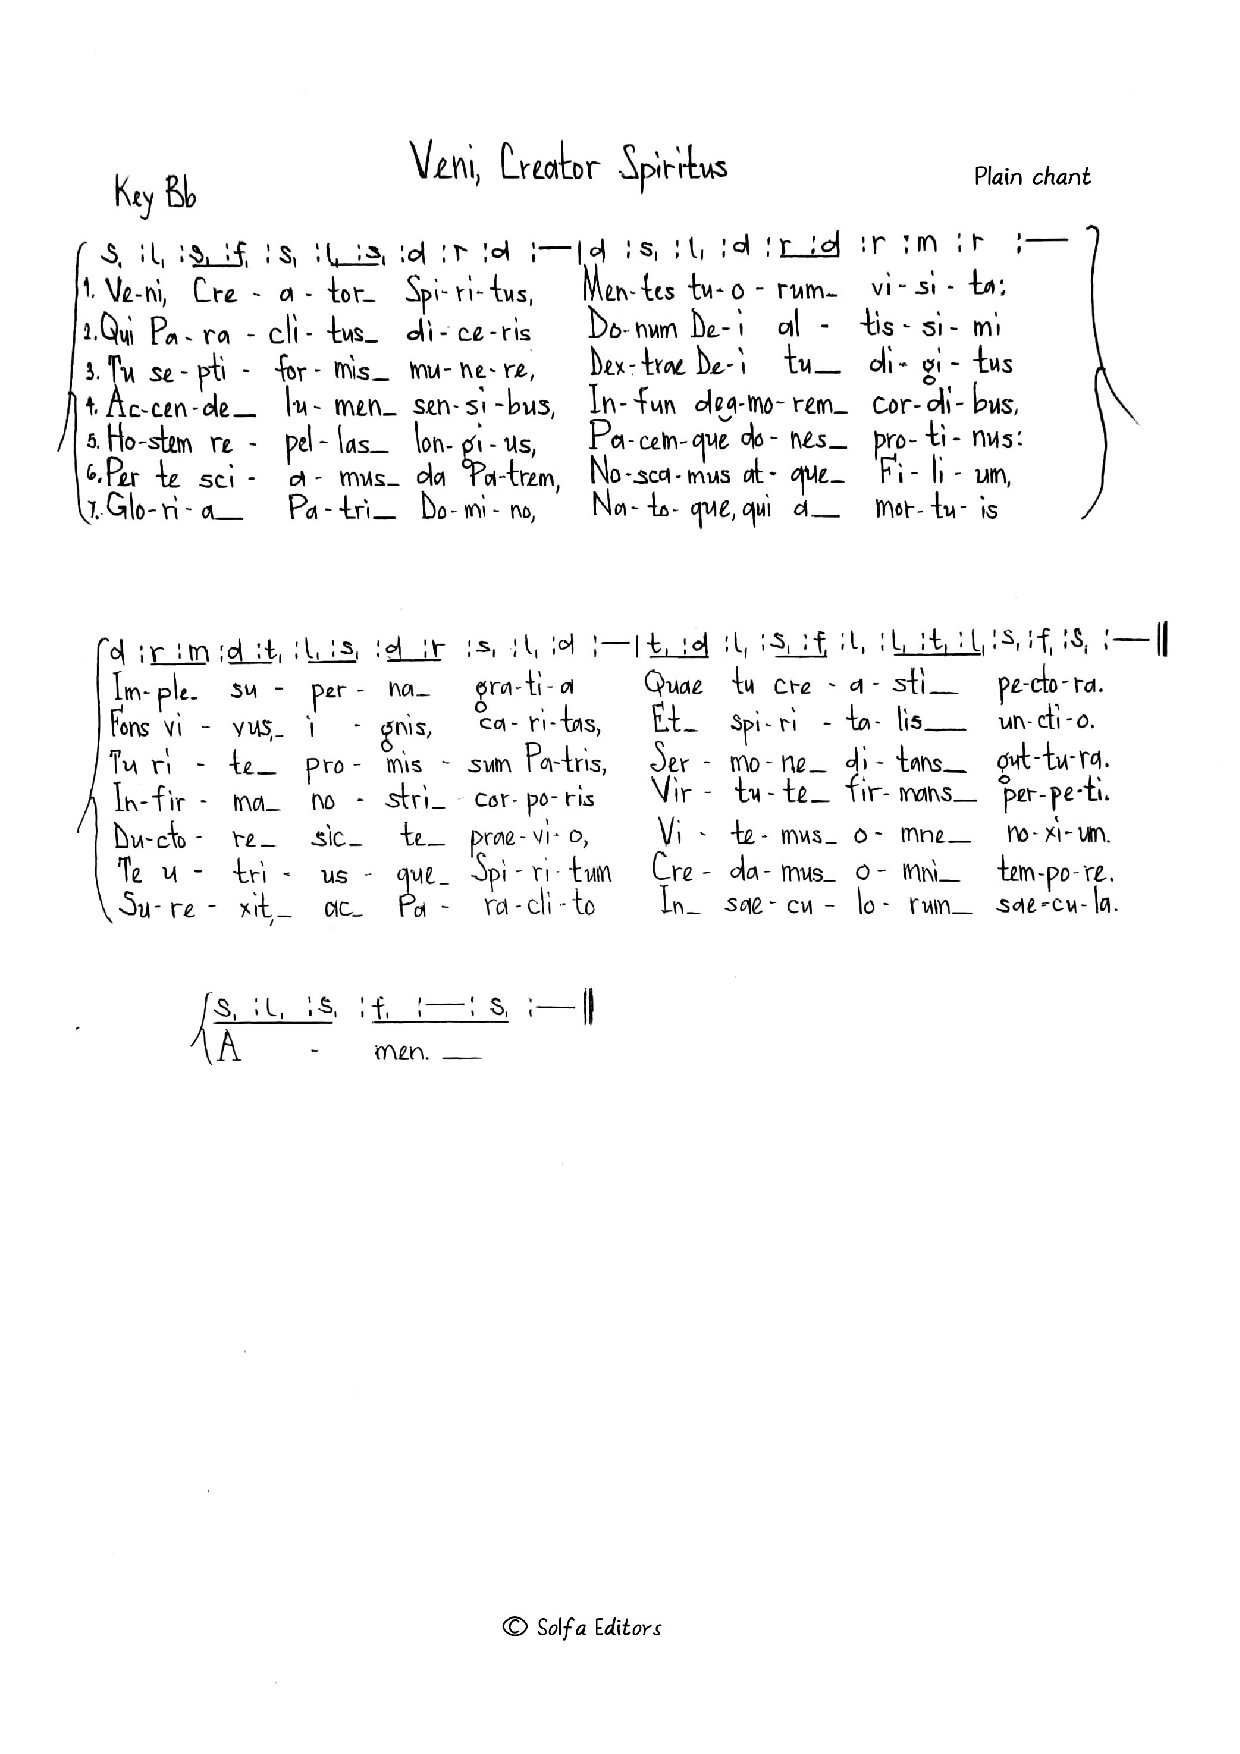 Veni, Creator Spiritus
Key Bb
Plain chant
s, :l, :s, :f, :s, :l, :s, :d :r :d :—|d :s, :l, :d :r :d :r :m :r :—
1. Ve-ni, Cre - a - tor_ Spi-ri-tus, Men-tes tu-o-rum_ vi-si-ta:
2. Qui Pa-ra-cli-tus_ di-ce-ris Do-num De-i al - tis-si-mi
3. Tu se-pti - for-mis_ mu-ne-re, Dex-trae De-i tu_ di-gi-tus
4. Ac-cen-de_ lu-men_ sen-si-bus, In-fun dea-mo-rem_ cor-di-bus,
5. Ho-stem re - pel-las_ lon-gi-us, Pa-cem-que do-nes_ pro-ti-nus:
6. Per te sci - a-mus_ da Pa-trem, No-sca-mus at-que_ Fi-li-um,
7. Glo-ri-a_ Pa-tri_ Do-mi-no, Na-to-que, qui a_ mor-tu-is
d :r :m :d :t, :l, :s, :d :r :s, :l, :d :—|t, :d :l, :s, :f, :l, :l, :t, :l, :s, :f, :s, :—||
Im-ple_ su - per - na_ gra-ti-a Quae tu cre-a-sti_ pe-cto-ra.
Fons vi - vus,_ i - gnis, ca-ri-tas, Et_ spi-ri - ta-lis_ un-cti-o.
Tu ri - te_ pro - mis - sum Pa-tris, Ser - mo-ne_ di-tans_ gut-tu-ra.
In-fir - ma_ no - stri_ cor-po-ris Vir - tu-te_ fir-mans_ per-pe-ti.
Du-cto - re_ sic_ te_ prae-vi-o, Vi - te-mus_ o-mne_ no-xi-um.
Te u - tri - us - que_ Spi-ri-tum Cre - da-mus_ o-mni_ tem-po-re.
Su-re - xit,_ ac_ Pa - ra-cli-to In_ sae-cu-lo-rum_ sae-cu-la.
s, :l, :s, :f, :— :s, :—||
A - men. _
© Solfa Editors